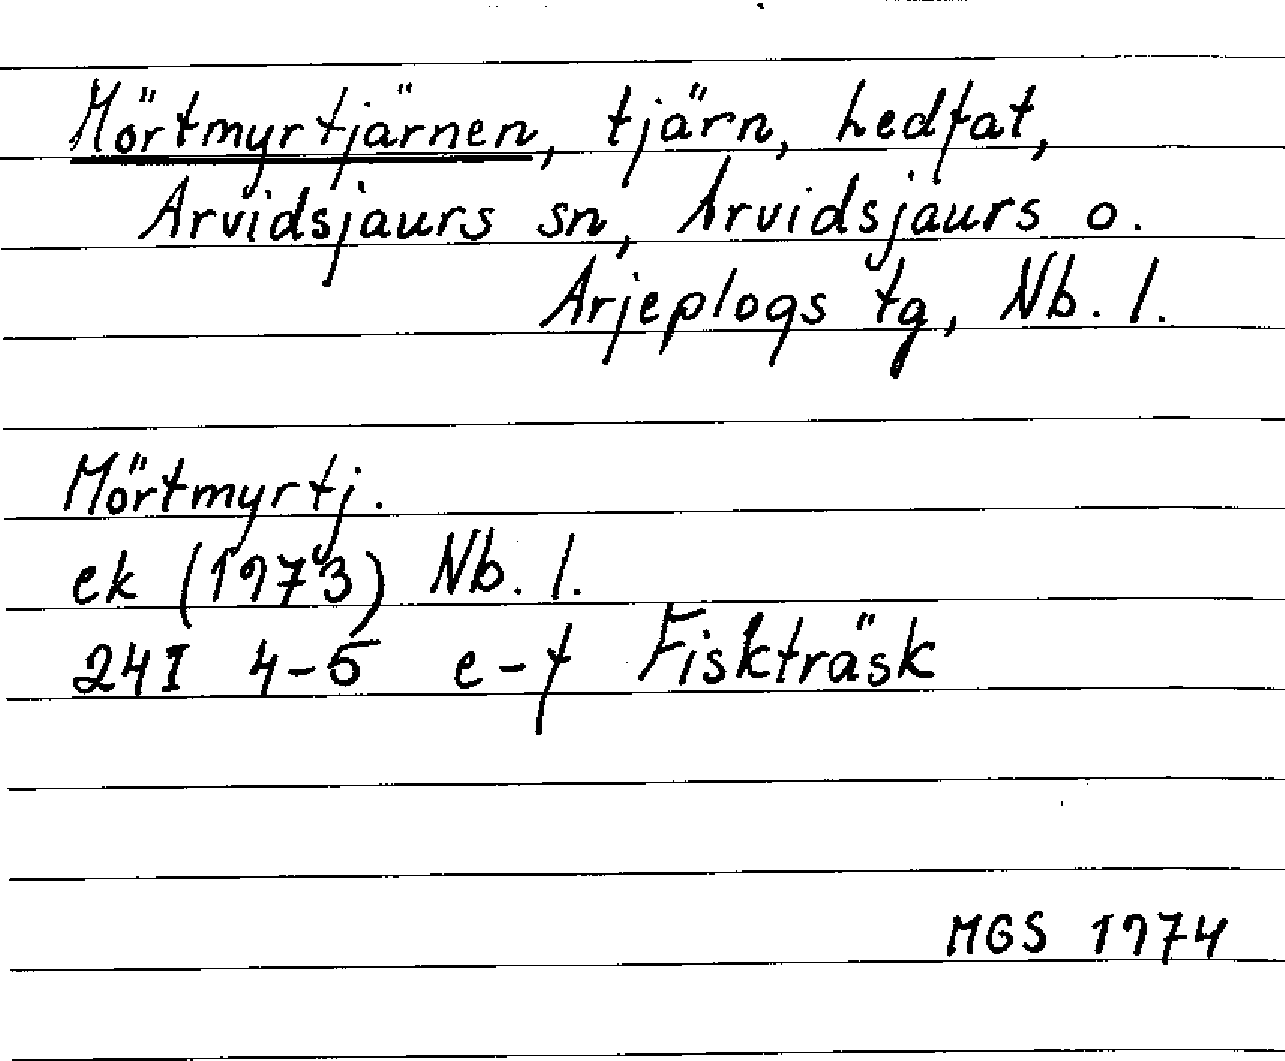 Mörtmyrtjärnen, tjärn, hedfat,
Arvidsjaurs sn, Arvidsjaurs o.
Arjeplogs tg, Nb. l.
Mörtmyrtj.
ek (1973) Nb. l.
24I 4-5 e-f Fiskträsk
MGS 1974